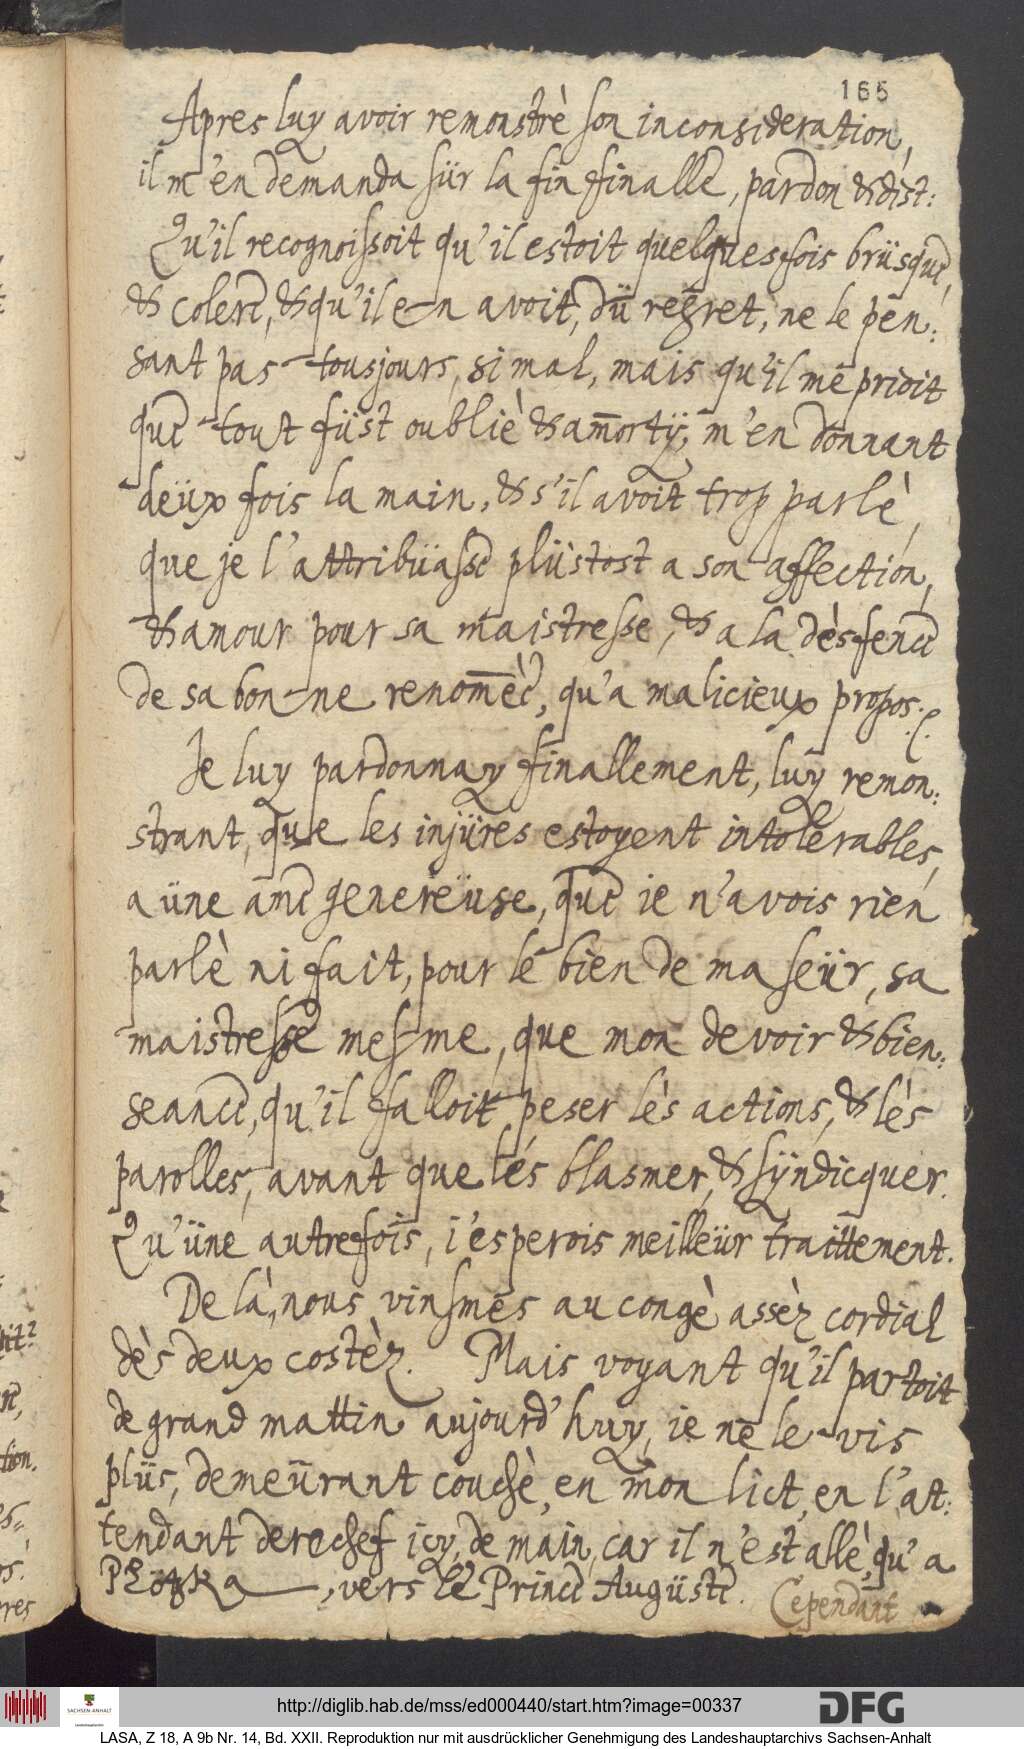 165
Apres luy avoir remonstrè son inconsideration,
il m'en demanda sür la fin finalle, pardon & dist:
Qu'il recognoissoit qu'il estoit quelquesfois brüsque,
& colere, & qu'il en avoit, dü regret, ne le pen:
sant pas tousjours, si mal, mais qu'il me prioit
que tout füst oubliè & am̄orty, m'en donnant
deüx fois la main, & s'il avoit trop parlè,
que je l'attribüasse plüstost a son affection,
& amour pour sa maistresse, & a la dèsfence
de sa bonne renom̄èe, qu'a malicieux propos.
Je luy pardonnay finallement, luy remon:
strant, que les injüres estoyent intolerables,
a üne ame genereüse, que ie n'avois rien
parlè ni fait, pour le bien de ma seür, sa
maistresse mesme, que mon devoir & bien:
seance, qu'il falloit peser lès actions, & lès
parolles, avant que les blasmer, & syndicquer.
Qu'üne autrefois, i'esperois meilleür traittement.
De là, nous vinsmes au congè assèz cordial
dès deux costèz. Mais voyant qu'il partoit
de grand mattin aujourd'huy, ie ne le vis
plüs, demeürant couchè, en mon lict, en l'at:
tendant derechef icy, demain, car il n'est allè, qu'a
Plötzka, vers le Prince Augüste. Cependant
http://diglib.hab.de/mss/ed000440/start.htm?image=00337
SACHSEN-ANHALT
Landeshauptarchiv
DFG
LASA, Z 18, A 9b Nr. 14, Bd. XXII. Reproduktion nur mit ausdrücklicher Genehmigung des Landeshauptarchivs Sachsen-Anhalt